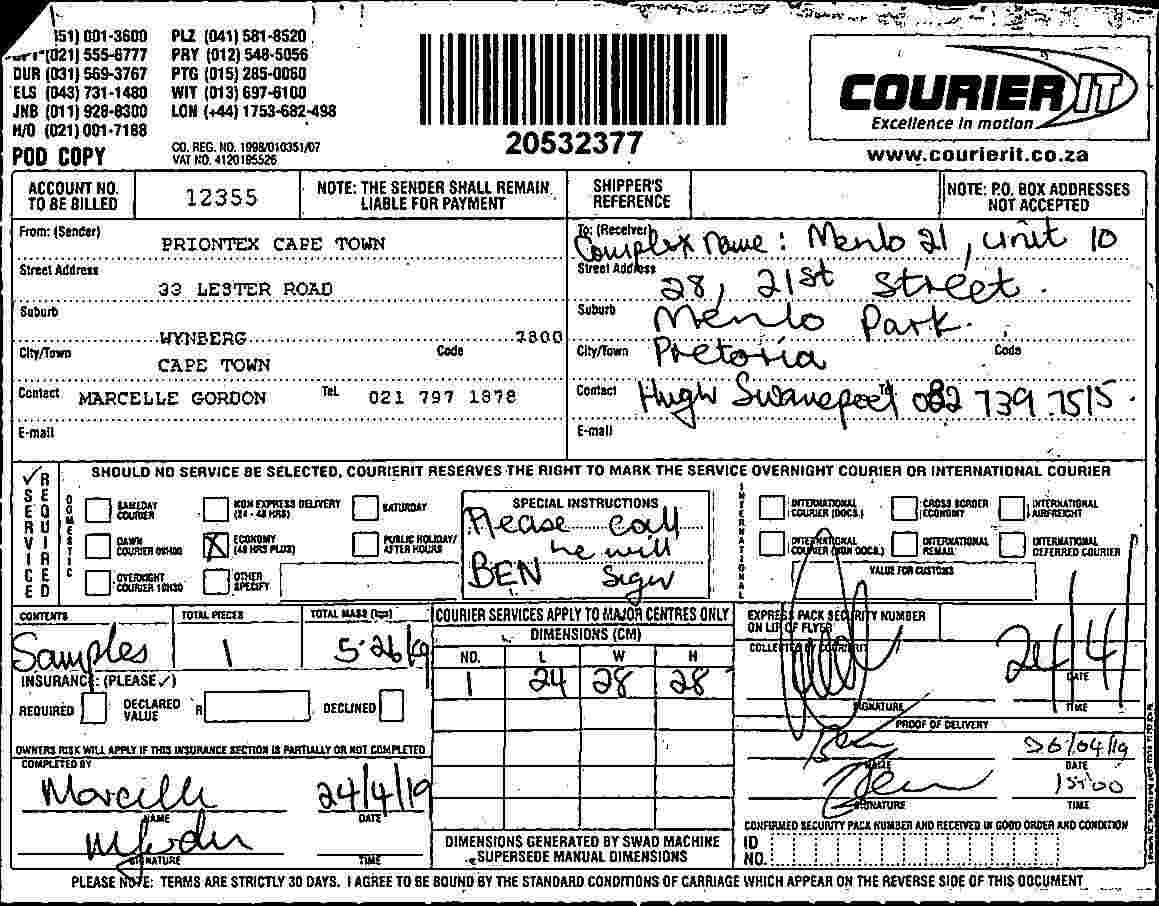 51) 001-3600 PLZ (041) 581-8520
(021) 555-6777 PRY (012) 548-5056
DUR (031) 569-3767 PTG (015) 285-0060
ELS (043) 731-1480 WIT (013) 697-6100
JNB (011) 928-8300 LON (+44) 1753-682-498
H/O (021) 001-7188
POD COPY
CO. REG. NO. 1998/010351/07
VAT NO. 4120185526
20532377
COURIER IT
Excellence in motion
www.courierit.co.za
ACCOUNT NO. TO BE BILLED
12355
NOTE: THE SENDER SHALL REMAIN LIABLE FOR PAYMENT
SHIPPER'S REFERENCE
NOTE: P.O. BOX ADDRESSES NOT ACCEPTED
From: (Sender)
PRIONTEX CAPE TOWN
Street Address
33 LESTER ROAD
Suburb
WYNBERG 7800
City/Town Code
CAPE TOWN
Contact MARCELLE GORDON Tel. 021 797 1878
E-mail
To: (Receiver)
Complex name : Menlo 21, unit 10
Street Address
28, 21st Street.
Suburb
Menlo Park.
City/Town Pretoria Code
Contact Hugh Swanepoel Tel 082 739 7515.
E-mail
✓ SERVICE REQUIRED
SHOULD NO SERVICE BE SELECTED, COURIERIT RESERVES THE RIGHT TO MARK THE SERVICE OVERNIGHT COURIER OR INTERNATIONAL COURIER
DOMESTIC
SAMEDAY COURIER
NON EXPRESS DELIVERY (24 - 48 HRS)
SATURDAY
DAWN COURIER 09H00
X ECONOMY (48 HRS PLUS)
PUBLIC HOLIDAY/ AFTER HOURS
OVERNIGHT COURIER 10H30
OTHER SPECIFY
SPECIAL INSTRUCTIONS
Please call
BEN he will
Sign
INTERNATIONAL
INTERNATIONAL COURIER (DOCS.)
CROSS BORDER ECONOMY
INTERNATIONAL AIRFREIGHT
INTERNATIONAL COURIER (NON DOCS.)
INTERNATIONAL REMAIL
INTERNATIONAL DEFERRED COURIER
VALUE FOR CUSTOMS
CONTENTS TOTAL PIECES TOTAL MASS (kgs)
Samples 1 5.26kg
INSURANCE: (PLEASE ✓)
REQUIRED DECLARED VALUE R DECLINED
OWNERS RISK WILL APPLY IF THIS INSURANCE SECTION IS PARTIALLY OR NOT COMPLETED
COMPLETED BY
Marcelle 24/4/19
NAME DATE
SIGNATURE TIME
COURIER SERVICES APPLY TO MAJOR CENTRES ONLY
DIMENSIONS (CM)
NO. L W H
1 24 28 28
DIMENSIONS GENERATED BY SWAD MACHINE
SUPERSEDE MANUAL DIMENSIONS
EXPRESS PACK SECURITY NUMBER ON LIP OF FLYER
COLLECTED BY COURIERIT
24/4/
DATE
SIGNATURE TIME
PROOF OF DELIVERY
Ben 26/04/19
NAME DATE
15:00
SIGNATURE TIME
CONFIRMED SECURITY PACK NUMBER AND RECEIVED IN GOOD ORDER AND CONDITION
ID NO.
PLEASE NOTE: TERMS ARE STRICTLY 30 DAYS. I AGREE TO BE BOUND BY THE STANDARD CONDITIONS OF CARRIAGE WHICH APPEAR ON THE REVERSE SIDE OF THIS DOCUMENT